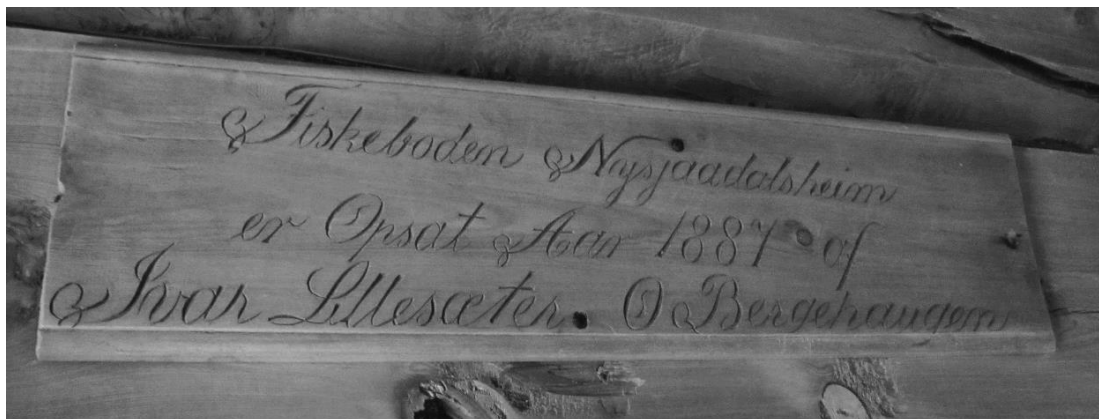 Fiskeboden Nysjaadalsheim
er Opsat Aar 1887 af
Ivar Lillesæter. O Bergehaugem